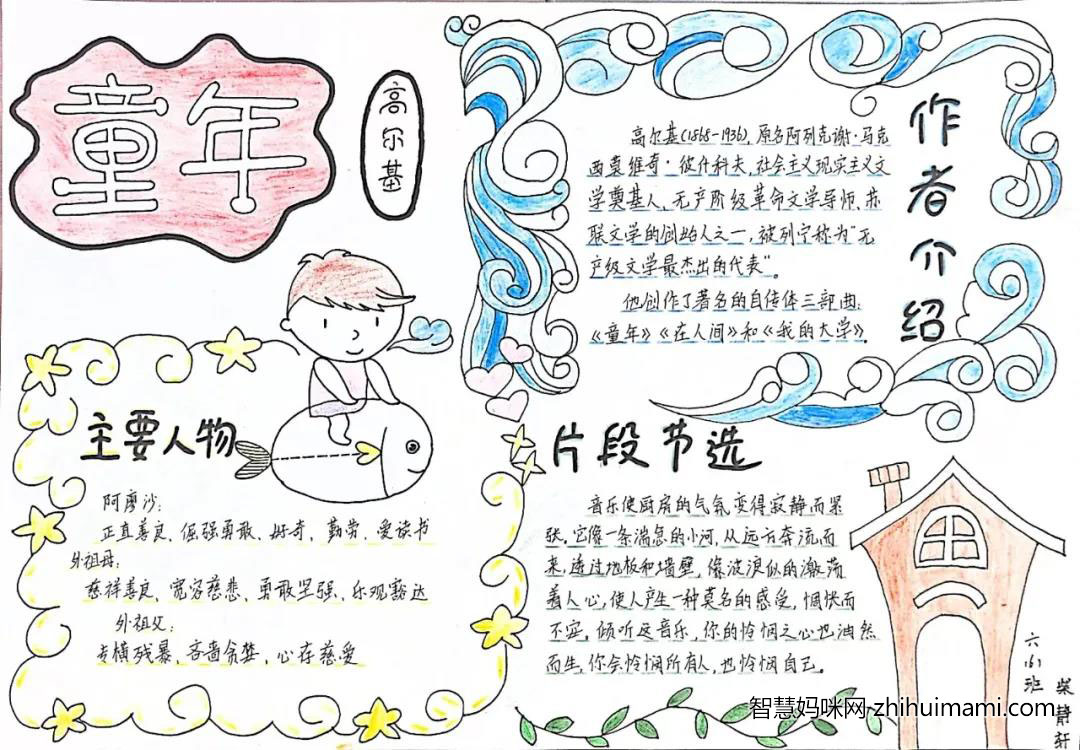 童年
高尔基
作者介绍
高尔基(1868-1936),原名阿列克谢·马克
西莫维奇·彼什科夫,社会主义现实主义文
学奠基人,无产阶级革命文学导师、苏
联文学的创始人之一,被列宁称为“无
产级文学最杰出的代表”。
他创作了著名的自传体三部曲:
《童年》《在人间》和《我的大学》。
主要人物
阿廖沙:
正直善良、倔强勇敢、好奇、勤劳、爱读书
外祖母:
慈祥善良、宽容慈悲、勇敢坚强、乐观豁达
外祖父:
专横残暴、吝啬贪婪、心存慈爱
片段节选
音乐使厨房的气氛变得寂静而紧
张,它像一条湍急的小河,从远方奔流而
来,透过地板和墙壁,像波浪似的激荡
着人心,使人产生一种莫名的感受,惆怅而
不安,倾听这音乐,你的怜悯之心也油然
而生,你会怜悯所有人,也怜悯自己。
六(6)班
柴静轩
智慧妈咪网-zhihuimami.com